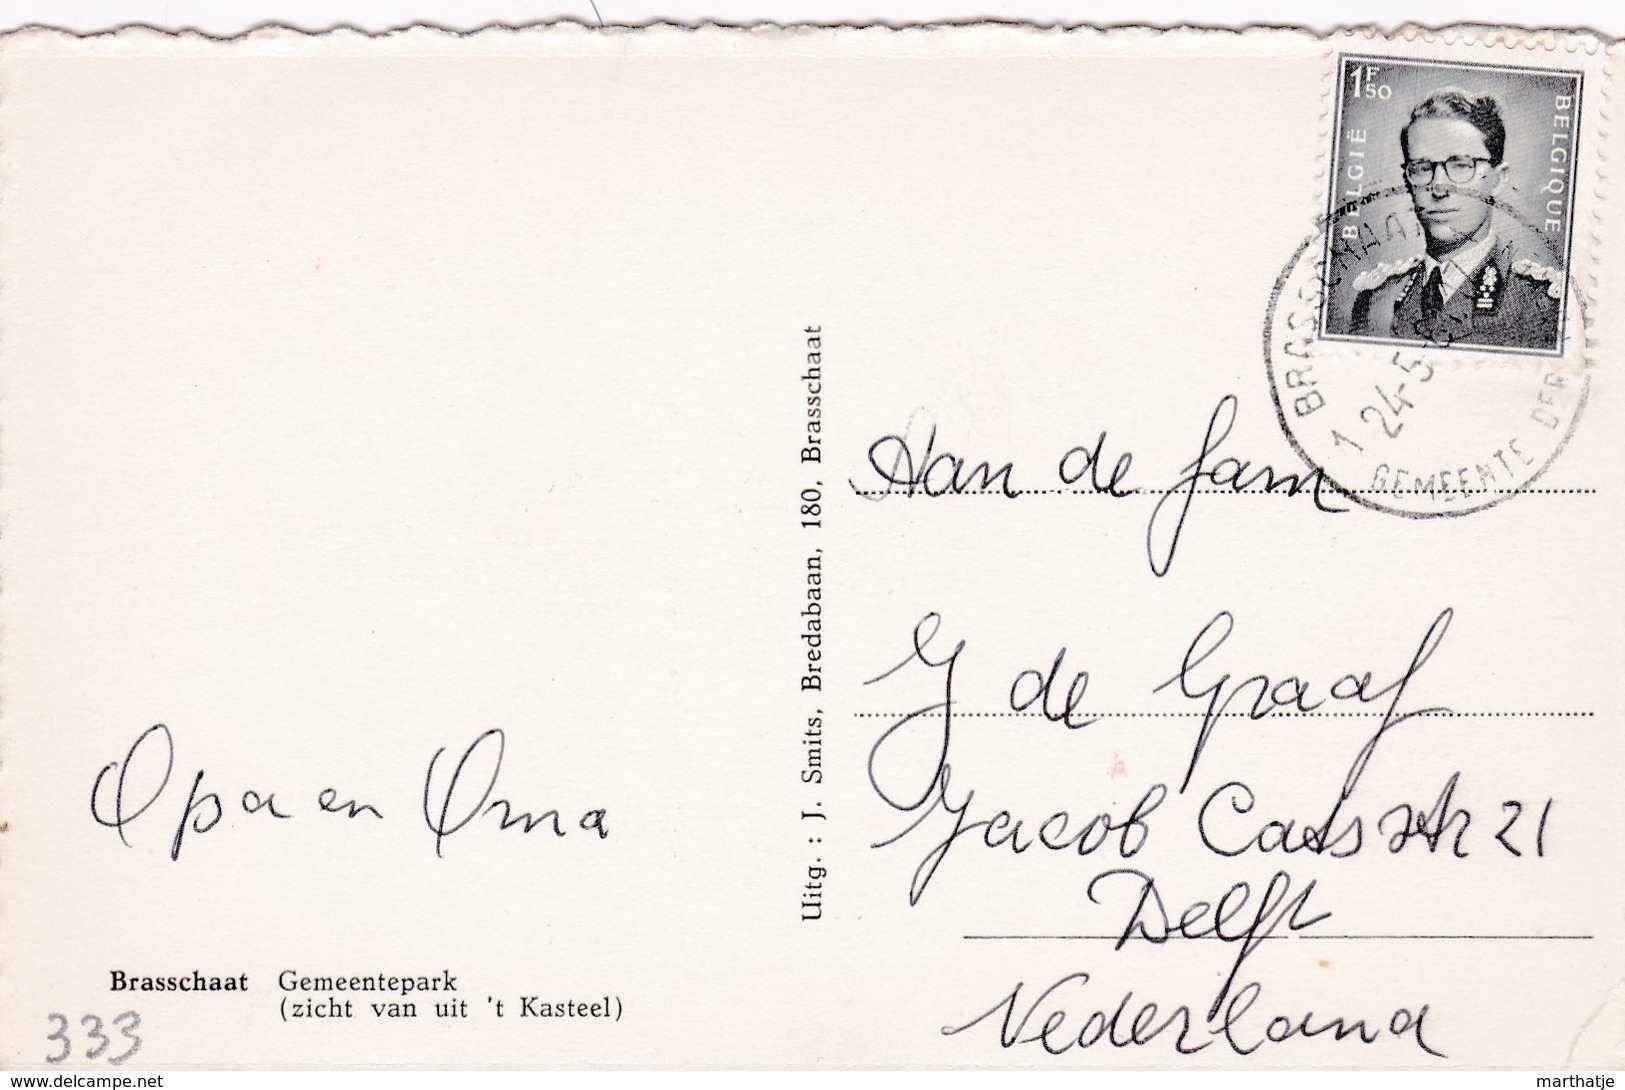 1F50
BELGIË
BELGIQUE
BRASSCHAAT
1
24-5
GEMEENTE DER
Aan de fam
J de Graaf
Jacob Catsstr 21
Delft
Nederland
Opa en Oma
Uitg. : J. Smits, Bredabaan, 180, Brasschaat
Brasschaat Gemeentepark
(zicht van uit 't Kasteel)
333
www.delcampe.net
marthatje